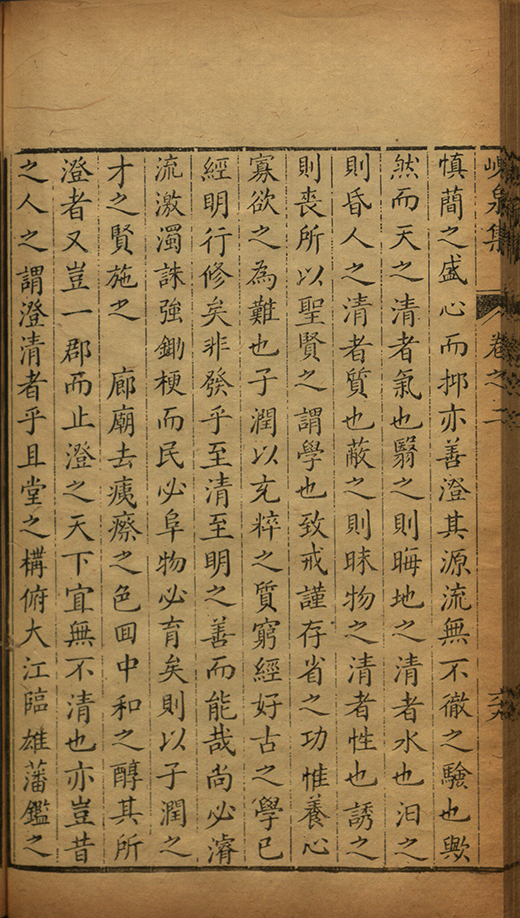 峴泉集 卷之二 六
慎蕳之盛心而抑亦善澄其源流無不徹之驗也歟
然而天之清者氣也翳之則晦地之清者水也汩之
則昏人之清者質也蔽之則昧物之清者性也誘之
則喪所以聖賢之謂學也致戒謹存省之功惟養心
寡欲之為難也子潤以充粹之質窮經好古之學已
經明行修矣非發乎至清至明之善而能哉尚必濬
流激濁誅強鋤梗而民必阜物必育矣則以子潤之
才之賢施之　廊廟去痍瘵之色囬中和之醇其所
澄者又豈一郡而止澄之天下宜無不清也亦豈昔
之人之謂澄清者乎且堂之構俯大江臨雄藩鑑之